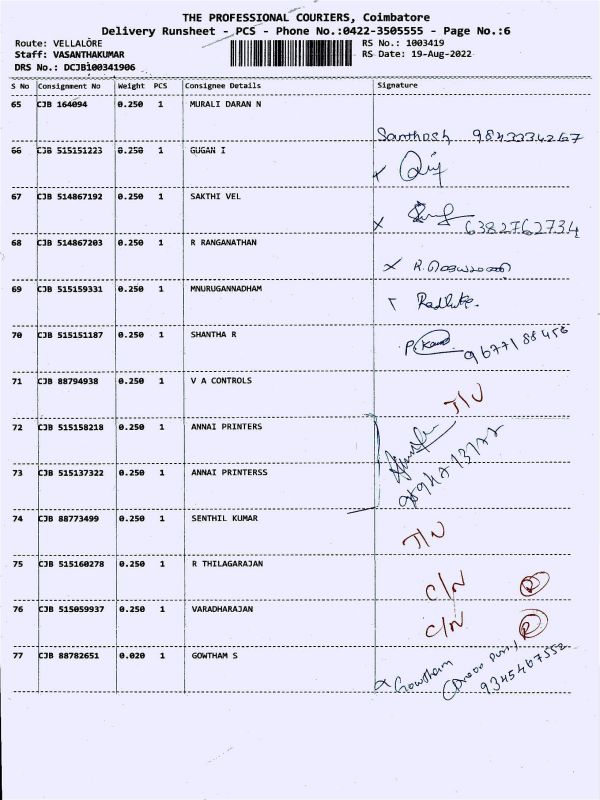 THE PROFESSIONAL COURIERS, Coimbatore
Delivery Runsheet - PCS - Phone No.:0422-3505555 - Page No.:6
Route: VELLALORE RS No.: 1003419
Staff: VASANTHAKUMAR RS Date: 19-Aug-2022
DRS No.: DCJB100341906
S No Consignment No Weight PCS Consignee Details Signature
65 CJB 164094 0.250 1 MURALI DARAN N
Santhosh 9843334267
66 CJB 515151223 0.250 1 GUGAN I
67 CJB 514867192 0.250 1 SAKTHI VEL
6382762734
68 CJB 514867203 0.250 1 R RANGANATHAN
69 CJB 515159331 0.250 1 MNURUGANNADHAM
70 CJB 515151187 0.250 1 SHANTHA R
9677188456
71 CJB 88794938 0.250 1 V A CONTROLS
72 CJB 515158218 0.250 1 ANNAI PRINTERS
73 CJB 515137322 0.250 1 ANNAI PRINTERSS
74 CJB 88773499 0.250 1 SENTHIL KUMAR
75 CJB 515160278 0.250 1 R THILAGARAJAN C/N R
76 CJB 515059937 0.250 1 VARADHARAJAN C/N R
77 CJB 88782651 0.020 1 GOWTHAM S
Gowtham 9345467552